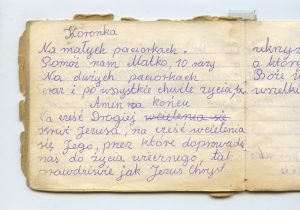 Koronka
Na małych paciorkach.
Pomóż nam Matko, 10 razy
Na dużych paciorkach
teraz i po wszystkie chwile życia,
Amin na końcu
Na cześć Drogiej wcielenia się
Krwi Jezusa, na cześć wcielenia
się Jego, przez które doprowadź
nas do życia wiecznego, tak
prawdziwie jak Jezus Chryst